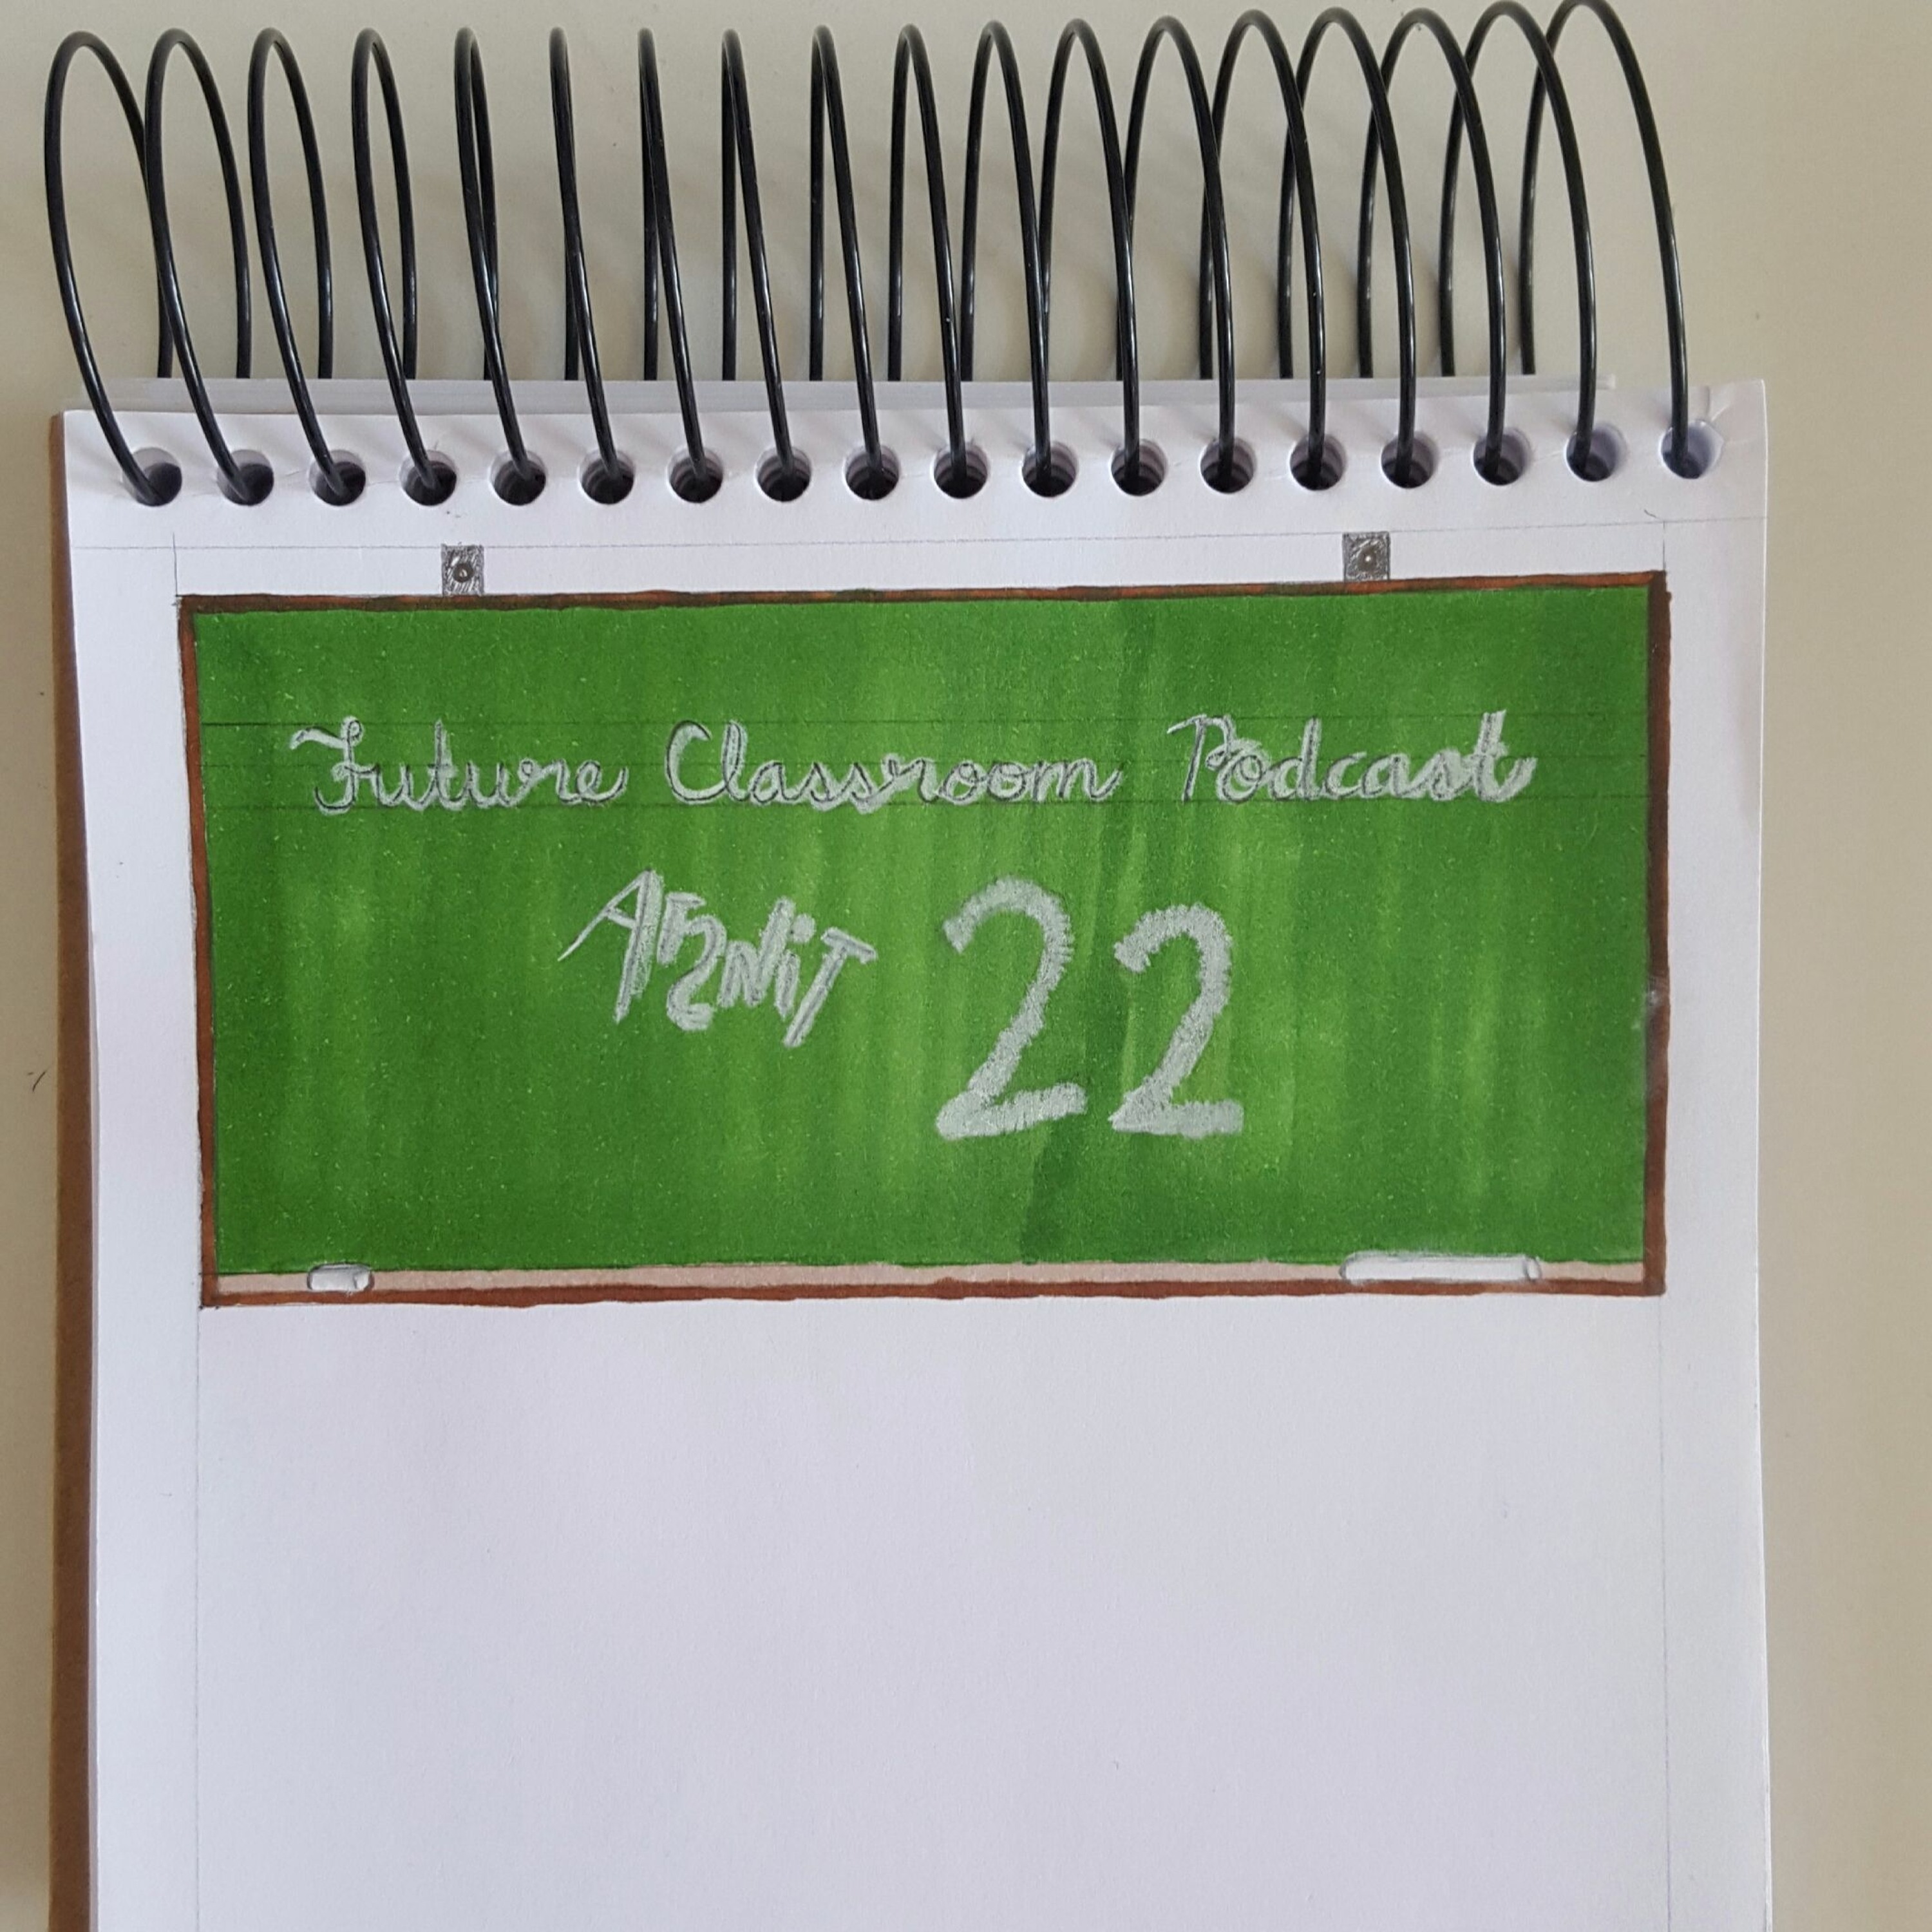 Future Classroom Podcast
22